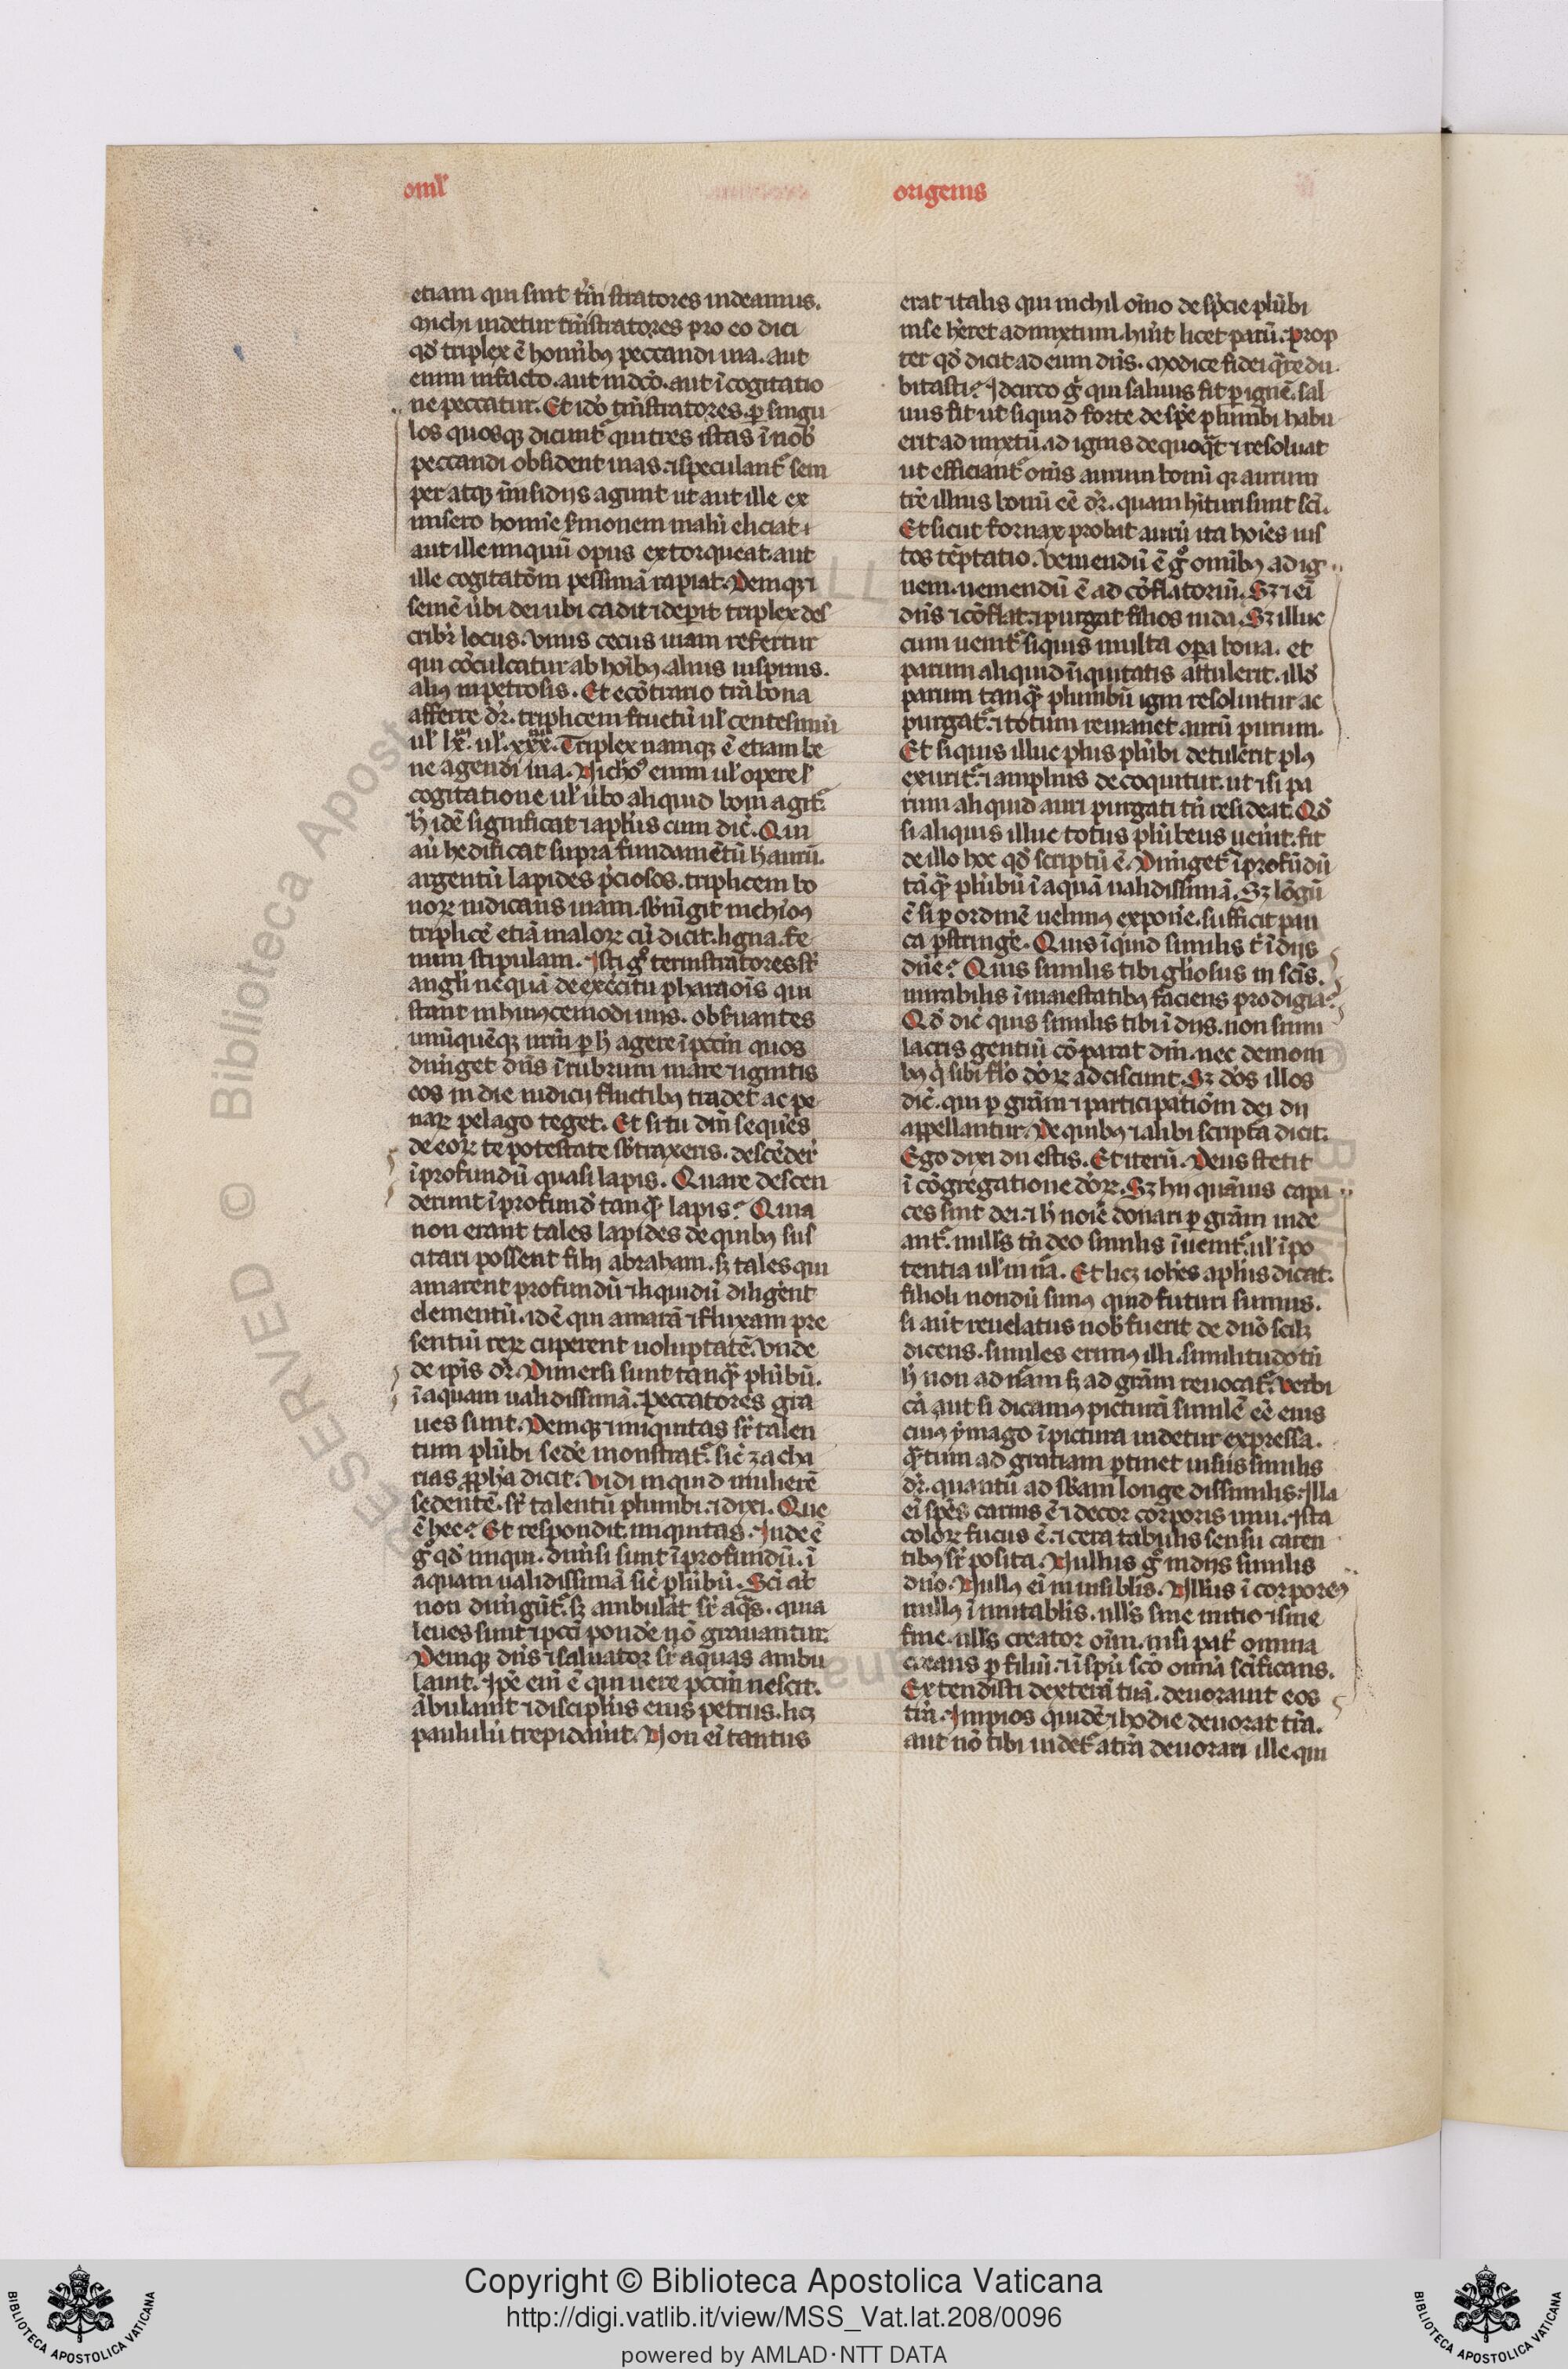 oml'
origenis
etiam qui sint t'ni stratores uideamus.
Michi uidetur tristratores pro eo dici
qd' triplex ē homībꝰ peccandi uia. aut
enim in facto. aut in dc̄o. aut ī cogitatio
ne peccatur. Et ido t̄nistratores. ꝑ singu
los quosqꝫ dicunt᷑ qui tres istas ī nob̄
peccandi obsident uias. ⁊ speculant᷑ sem
per atqꝫ ī insidijs agunt ut aut ille ex
misero homīe s̄monem malū eliciat.
aut ille iniquū opus extorqueat. aut
ille cogitatōm pessimā rapiat. Deniqꝫ ⁊
semē ūbi dei ubi cadit ⁊ deꝑit triplex des
cribr̄ locus. Vnus secus uiam refertur
qui cōculcatur ab hoībꝰ. alius ī uspinis.
aliꝰ in petrosis. Et ecōtrario t̄ra bona
afferre dr̄. triplicem fructū ul' centesimū
ul' lx. ul' xxx. Triplex namqꝫ ē etiam be
ne agendi uia. Nichō enim ul' opere l'
cogitatione ul' ūbo aliquid boni agit᷑
h̄ idē significat ⁊ apl's cum dic̄. Qui
aū hedificat supra fundamētū h̄ aurū.
argentū lapides p̄ciosos. triplicem bo
noꝝ iudicans uiam. s̄ iūgit nichiloꝰ
triplicē etiā maloꝝ cū dicit. ligna. fe
num stipulam. Isti gͦ ternistratores st̄
angl'i nequā de exercitu pharaoīs qui
stant in huiꝰcemodi uijs. obs̄uantes
unūquēqꝫ nr̄m ꝑ h̄ agere ī pctm̄ quos
dimget dn̄s ī rubrum mare ⁊ ignitis
eos in die iudicij fluctibꝰ tradet ac pe
naꝝ pelago teget. Et si tu dn̄m sequēs
de eoꝝ te potestate s̄traxeris. descēder̄
ī profundū quasi lapis. Quare descen
derunt ī profund' tanqᷓ lapis? Quia
non erant tales lapides de quibꝰ sus
citari possent filij abraham. sꝫ tales qui
amarent profundū ⁊ liquidū diligent
elementū. idē qui amarā ⁊ fluxam pre
sentiū reꝝ cuperent uoluptatē. Vnde
de ip̄is dr̄. Dimersi sunt tanqᷓ plūbū.
ī aquam ualidissimā. Peccatores gra
ues sunt. Deniqꝫ iniquitas sr̄ talen
tum plūbi sede monstrat᷑. sic̄ zacha
rias ꝓph̄a dicit. Vidi inquid mulierē
sedentē. sr̄ talentū plumbi. ⁊ dixi. Que
ē hec? Et respondit. iniquitas. Inde ē
gͦ qd' iniqui. dim̄si sunt ī profundū. ī
aquam ualidissimā sic̄ plūbū. Sc̄i at̄
non dim̄gūt᷑. sꝫ ambulāt sr̄ aqᷓs. quia
leues sunt ⁊ pctī ponde nō grauantur.
Deniqꝫ dn̄s ⁊ saluator sr̄ aquas ambu
lauit. Ip̄e enī ē qui uere pctm̄ nescit.
ābulauit ⁊ discipl's eius petrus. licꝫ
paululū trepidauit. Non eī tantus
erat ⁊ talis qui nichil oīno de sp̄cie plūbi
in se h̄eret admixtum. hūit licet parū. prop
ter qd' dicit ad eum dn̄s. Modice fidei qᷓre du
bitasti? Idcirco gͦ qui saluus fit ꝑ ignē. sal
uus fit ut siquid forte de spē plumbi habu
erit ad mixtū. ad ignis dequoqᷓt ⁊ resoluat
ut efficiant᷑ om̄s aurum bonū qꝛ aurum
tr̄e illius bonū eē dr̄. quam hītūri sunt sc̄i.
Et sicut fornax probat aurū ita hoīes ius
tos tēptatio. Veniendū ē gͦ omībꝰ ad ig
nem. ueniendū ē ad cōflatoriū. Sꝫ ⁊ eī
dn̄s ⁊ cōflat. ⁊ purgat filios iuda. Sꝫ illuc
cum uenit᷑ siquis multa oꝑa bona. et
parum aliquid īiquitatis attulerit. illd'
parum tanqᷓ plumbū igni resoluitur ac
purgat᷑. ⁊ totum remanet aurū purum.
Et siquis illuc plus plūbi detulerit plꝰ
exurit᷑. ⁊ amplius decoquitur. ut ⁊ si pa
rum aliquid auri purgati tn̄ resideat. Qd'
si aliquis illuc totus plūbeus uenīt. fit
de illo hoc qd' scriptū ē. Dimget᷑ ī profūdū
tāqᷓ plūbū ī aquā ualidissimā. Sꝫ lōgū
ē si ꝑ ordinē uelimꝰ expone. sufficit pau
ca p̄stringē. Quis īquid similis t' ī dijs
dn̄e? Quis similis tibi gl'osus in sc̄is.
mirabilis ī maiestatibꝰ faciens prodigia?
Qd' dic̄ quis similis tibi ī dijs. non simu
lacris gentiū cōparat dn̄m. nec demoni
bꝰ q' sibi fl'o dōꝝ adsciscunt. Sꝫ dōs illos
dic̄. qui ꝑ grām ⁊ participatiōm dei dij
appellantur. De quibꝰ ⁊ alibi scriptā dicit.
Ego dixi dij estis. Et iterū. Deus stetit
ī cōgregatione dōꝝ. Sꝫ hij quāuis capa
ces sint dei. ⁊ h̄ noīe donari ꝑ grām uide
ant᷑. null's tn̄ deo similis īuenit᷑. ul' ī po
tentia ul' in nā. Et licꝫ ioh̄es apl's dicat.
filioli nondū simꝰ quid futuri sumus.
si aūt reuelatus nob̄ fuerit de dn̄o scilꝫ
dicens. similes erimꝰ illi. similitudo tn̄
h̄ non ad nām sꝫ ad grām reuocat᷑. Verbi
cā aut si dicamꝰ picturā similē eē eius
cuiꝰ ymago ī pictura uidetur expressa.
qᷓtum ad gratiam ꝑtinet uisus similis
dr̄. quantū ad s̄bam longe dissimilis. Illa
eī spēs carnis ē ⁊ decor corporis uiui. Ista
coloꝝ fucus ē. ⁊ cera tabulis sensu caren
tibꝰ sr̄ posita. Nullus gͦ in dijs similis
dn̄o. Nullꝰ eī inuisibl'is. Nll'us ī corporeꝰ
nullꝰ īmutabl'is. null's sine initio ⁊ sine
fine. null's creator oīm. nisi pat̄ omnia
creans ꝑ filiū. ⁊ ī spū sc̄o omnā sc̄ificans.
Extendisti dexterā tuā. deuorauit eos
tr̄a. Impios quidē ⁊ hodie deuorat tr̄a.
aut nō tibi uidet᷑ a tr̄a deuorari ille qui
Copyright © Biblioteca Apostolica Vaticana
http://digi.vatlib.it/view/MSS_Vat.lat.208/0096
powered by AMLAD·NTT DATA